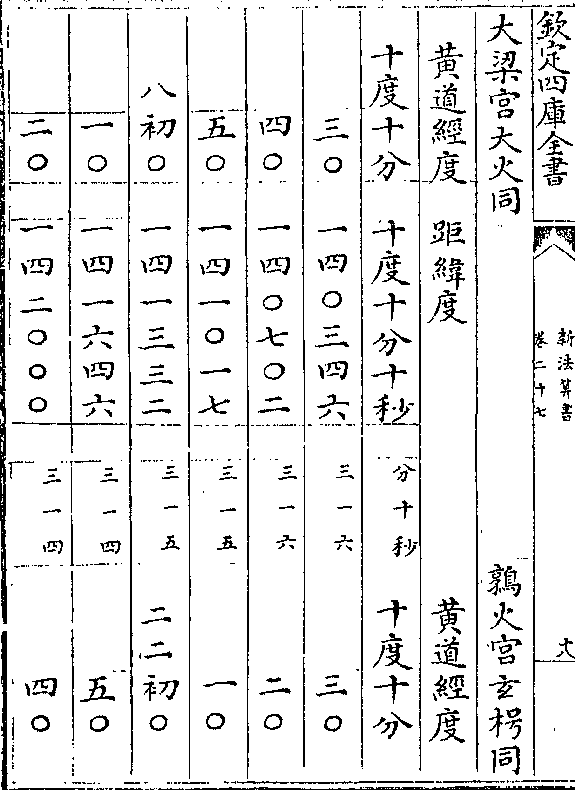 欽定四庫全書
新法算書
卷二十七
十八
大梁宮大火同 鶉火宮玄枵同
黃道經度 距緯度 黃道經度
十度十分 十度十分十秒 分十秒 十度十分
三〇 一四〇三四六 三一六 三〇
四〇 一四〇七〇二 三一六 二〇
五〇 一四一〇一七 三一五 一〇
八初〇 一四一三三二 三一五 二二初〇
一〇 一四一六四六 三一四 五〇
二〇 一四二〇〇〇 三一四 四〇